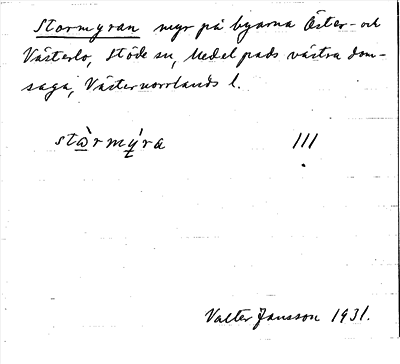 Stormyran myr på byarna Öster- och
Västerlo, Stöde sn, Medelpads västra dom-
saga, Västernorrlands l.
stὼrmý̠ra III
Valter Jansson 1931.